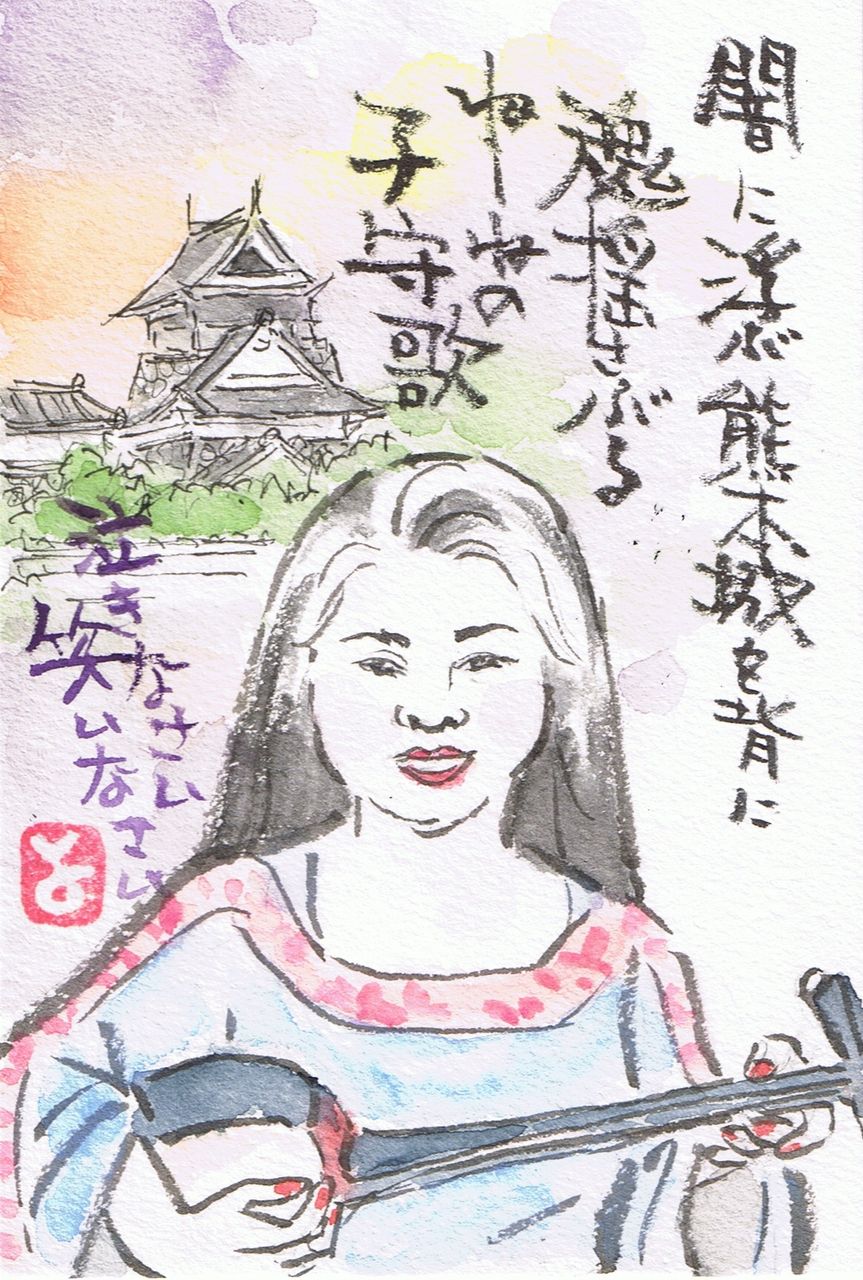 闇に浮ぶ熊本城を背に
魂揺さぶる
ねーねーの
子守歌
泣きなさい
笑いなさい
と